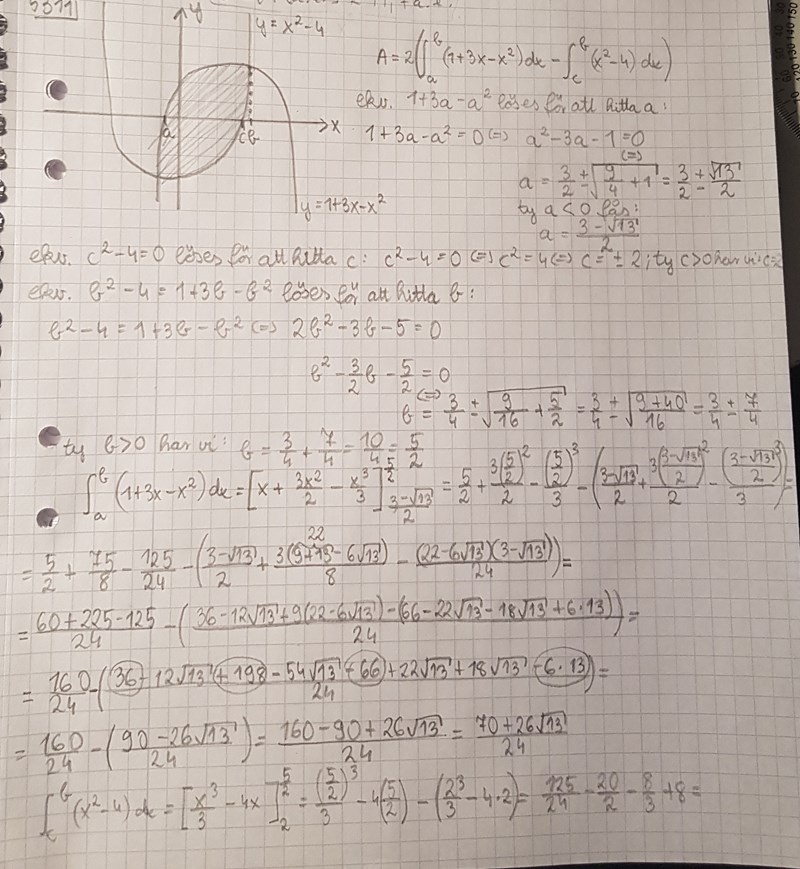 5311
y
y = x² - 4
A = 2(∫_a^b (1+3x-x²) dx - ∫_c^b (x²-4) dx)
ekv. 1+3a-a² löses för att hitta a:
a
c b
x
1+3a-a² = 0 <=> a²-3a-1 = 0
<=>
a = 3/2 ± √(9/4 + 1) = 3/2 ± √13/2
y = 1+3x-x²
ty a < 0 fås:
a = (3-√13)/2
ekv. c²-4=0 löses för att hitta c: c²-4=0 <=> c²=4 <=> c = ±2; ty c>0 har vi: c=2
ekv. b²-4 = 1+3b-b² löses för att hitta b:
b²-4 = 1+3b-b² <=> 2b²-3b-5 = 0
b² - 3/2 b - 5/2 = 0
<=>
b = 3/4 ± √(9/16 + 5/2) = 3/4 ± √((9+40)/16) = 3/4 ± 7/4
ty b>0 har vi: b = 3/4 + 7/4 = 10/4 = 5/2
∫_a^b (1+3x-x²) dx = [x + 3x²/2 - x³/3]_{(3-√13)/2}^{5/2} = 5/2 + 3(5/2)²/2 - (5/2)³/3 - ((3-√13)/2 + 3((3-√13)/2)²/2 - ((3-√13)/2)³/3) =
22
= 5/2 + 75/8 - 125/24 - ((3-√13)/2 + 3(9+13-6√13)/8 - (22-6√13)(3-√13)/24) =
= (60+225-125)/24 - ((36-12√13+9(22-6√13)-(66-22√13-18√13+6·13))/24) =
= 160/24 - ((36-12√13+198-54√13-66+22√13+18√13-6·13)/24) =
= 160/24 - ((90-26√13)/24) = (160-90+26√13)/24 = (70+26√13)/24
∫_c^b (x²-4) dx = [x³/3 - 4x]_2^{5/2} = (5/2)³/3 - 4(5/2) - (2³/3 - 4·2) = 125/24 - 20/2 - 8/3 + 8 =